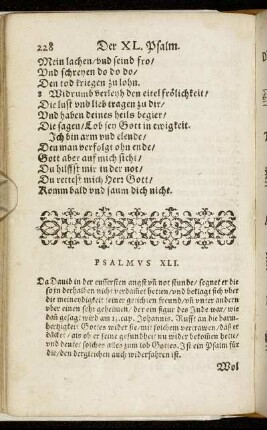 228 Der XL. Psalm.
Mein lachen/ vnd seind fro/
Vnd schreyen do do do/
Den tod kriegen zu lohn.
8 Widrumb verleyh den eitel frölichkeit/
Die lust vnd lieb tragen zu dir/
Vnd haben deines heils begier/
Die sagen/ Lob sey Gott in ewigkeit.
Ich bin arm vnd elende/
Den man verfolgt ohn ende/
Gott aber auf mich sicht/
Du hilffst mir in der not/
Du rettest mich Herr Gott/
Komm bald vnd saum dich nicht.
PSALMVS XLI.
Da Dauid in der eussersten angst vñ not stunde/ segnet er die
so in derhalben nicht verdamet hetten/ vnd beklagt sich vber
die meineydigkeit seiner gerichten freund/ vñ vnter andern
vber einen sehr geheimen/ der ein figur des Juda war/ wie
dañ gesagt wird am 13. cap. Johannis. Rufft an die barm-
hertzigkeit Gottes wider sie/ mit solchem vertrawen/ daß er
dancket/ als ob er seine gesundheit nu wider bekommen hette/
vnd deutet solches alles zum lob Gottes. Ist ein Psalm für
die/ den dergleichen auch widerfahren ist.
Wol